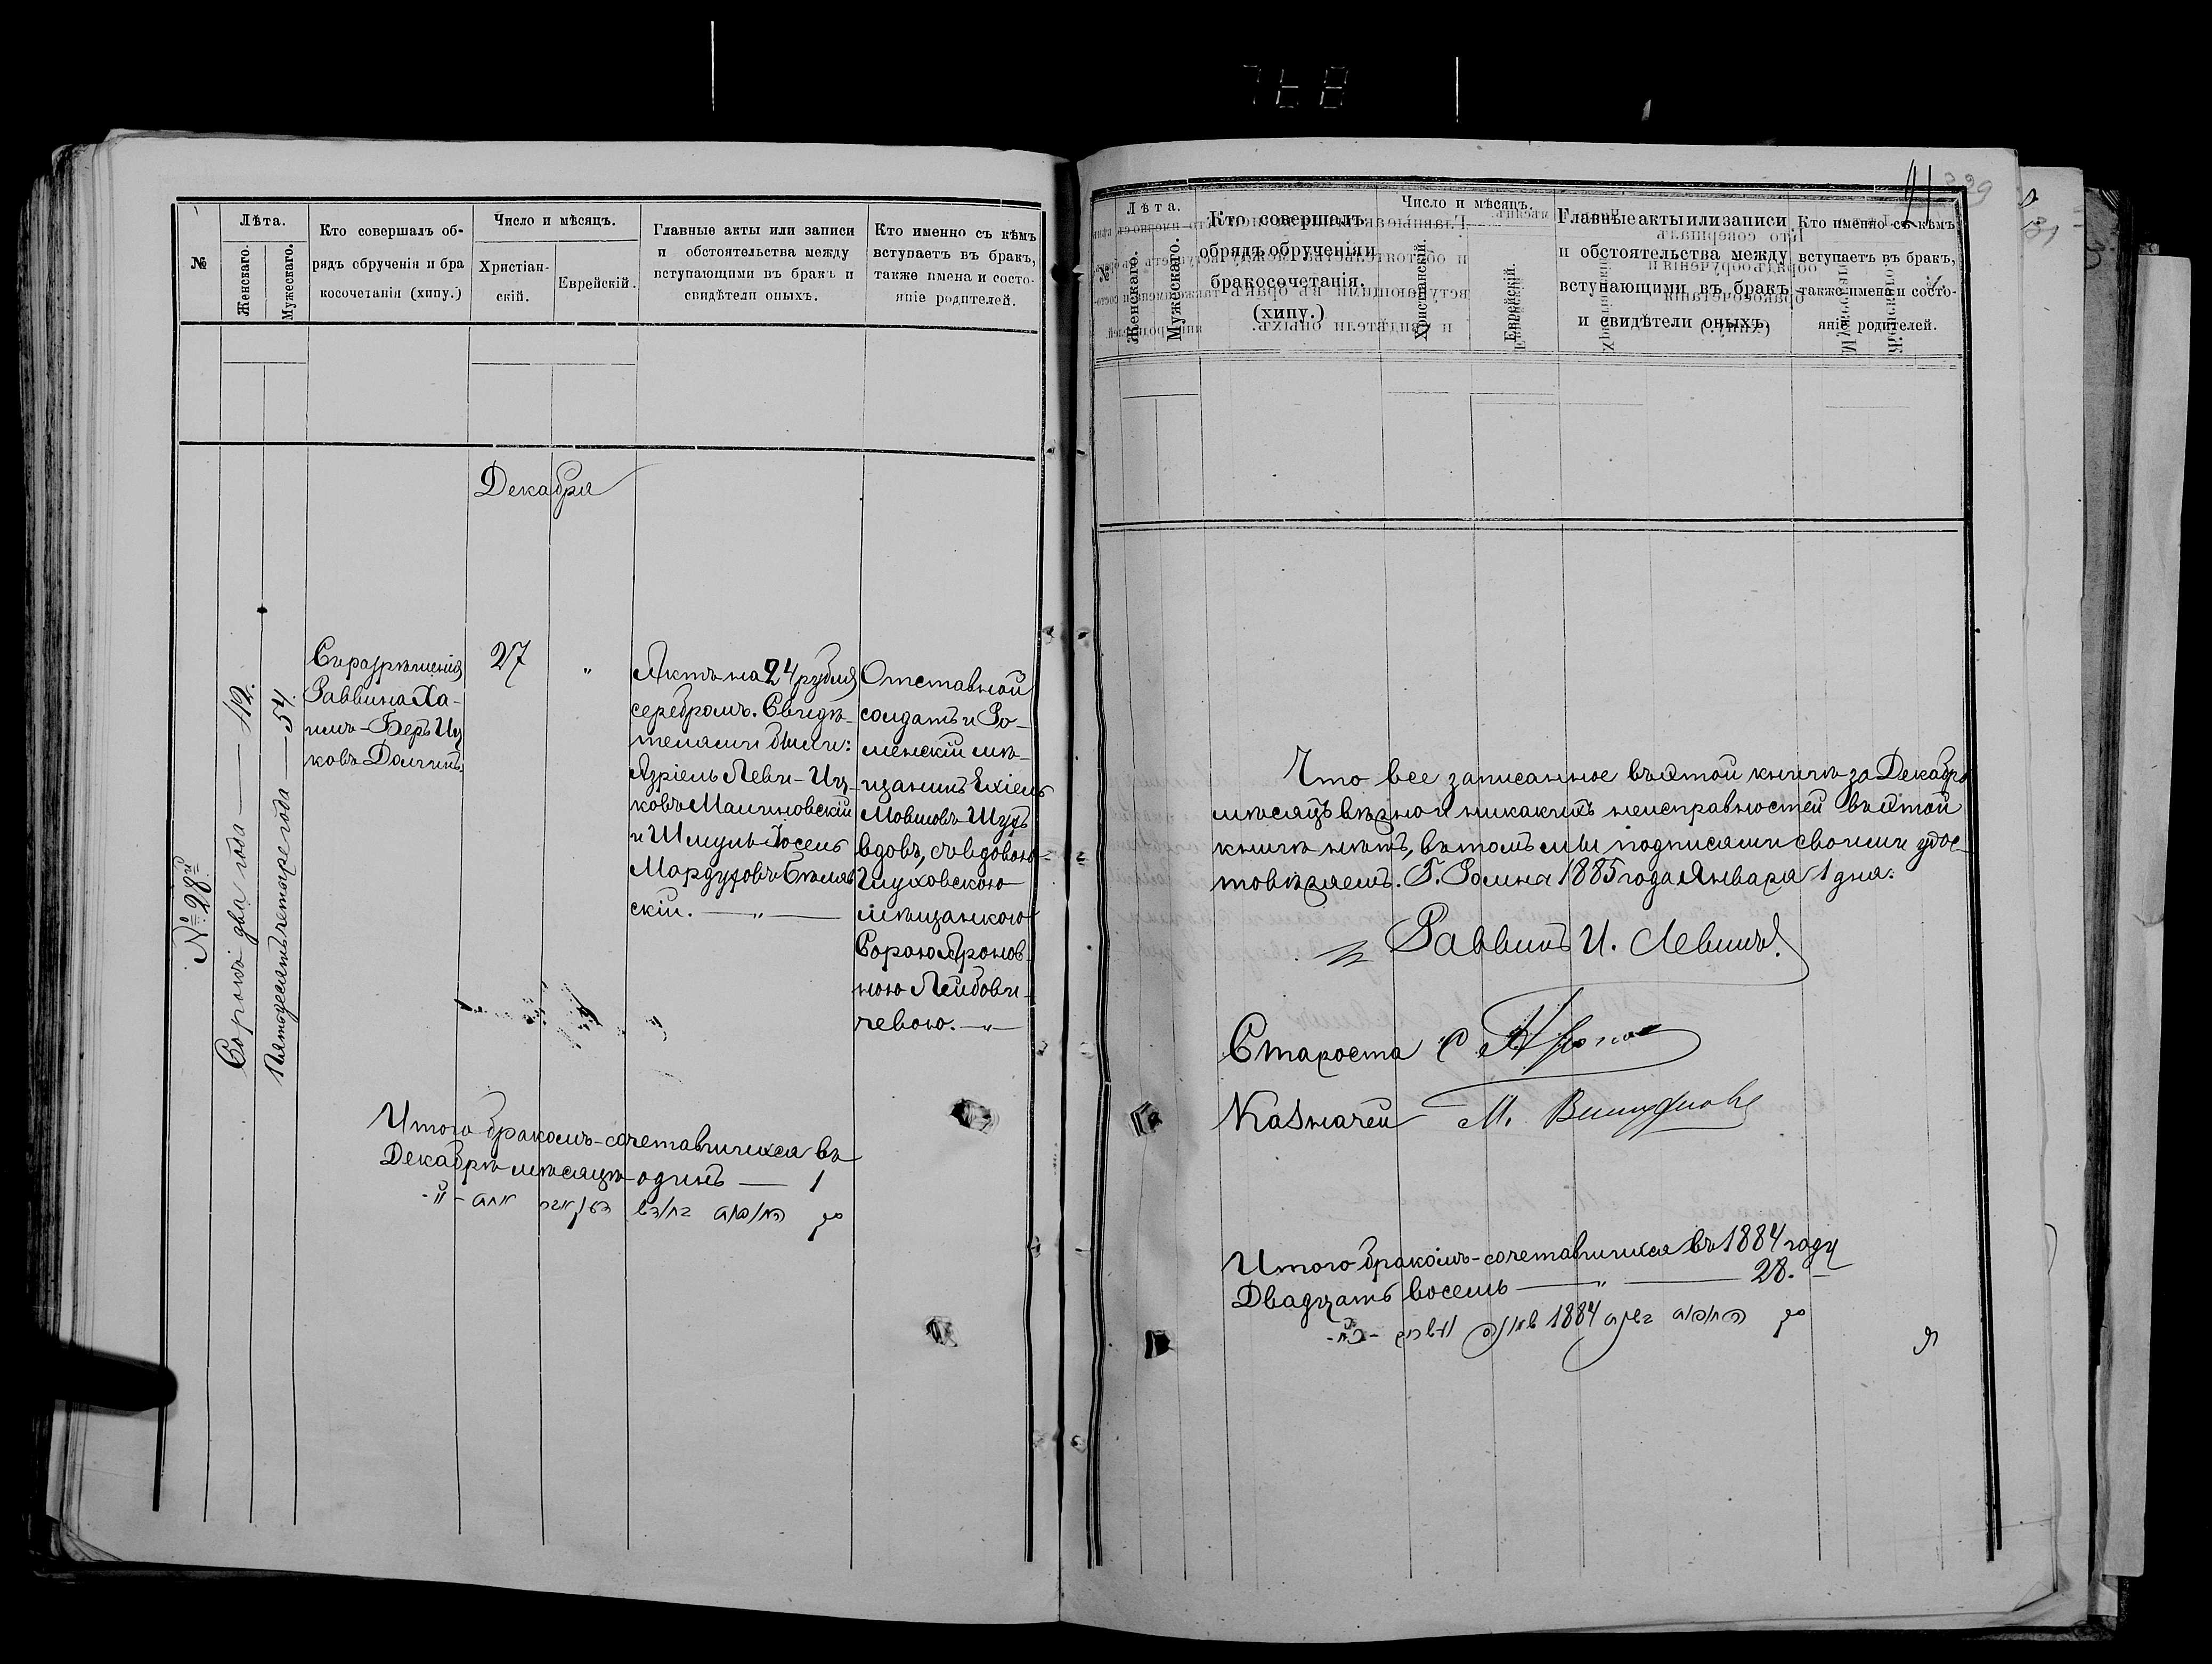 №
Лѣта.
Женскаго.
Мужескаго.
Кто совершалъ об-
рядъ обрученія и бра
косочетанія (хипу.)
Число и мѣсяцъ.
Христіан-
скій.
Еврейскій.
Главные акты или записи
и обстоятельства между
вступающими въ бракъ и
свидѣтели оныхъ.
Кто именно съ кѣмъ
вступаетъ въ бракъ,
также имена и состо-
яніе родителей.
Декабря
№ 28й
Сорокъ два года — 42.
Пятьдесятъ четыре года — 54.
Съ разрѣшенія
Раввина Ха-
имъ-Беръ Иц
ковъ Долгинъ
27
"
Актъ на 24 рубля
серебромъ. Свидѣ-
телями были:
Азріель Леви-Иц-
ковъ Малиновскій
и Шмуль-Іосель
Мордуховъ Бѣляв
скій. — " —
Отставной
солдатъ и Ро-
менскій мѣ-
щанинъ Ехіель
Мовшовъ Шухъ
вдовъ, съ вдовою
Глуховскою
мѣщанкою
Сорою Ароновн-
ною Лейбови-
чевою. — " —
Итого бракомъ-сочетавшихся въ
Декабрѣ мѣсяцѣ одинъ — 1
Лѣта.
Женскаго.
Мужескаго.
Кто совершалъ
обрядъ обрученія и
бракосочетанія.
(хипу.)
Число и мѣсяцъ.
Христіанскій.
Еврейскій.
Главные акты или записи
и обстоятельства между
вступающими въ бракъ
и свидѣтели оныхъ.
Кто именно съ кѣмъ
вступаетъ въ бракъ,
также имена и состо-
яніе родителей.
Что все записанное въ этой книгѣ за Декабрь
мѣсяцъ вѣрно и никакихъ неисправностей въ этой
книгѣ нѣтъ, въ томъ мы подписями своими удос-
товѣряемъ. Г. Ромна 1885 года Января 1 дня.
Раввинъ И. Левинъ
Староста С
Казначей М.
Итого бракомъ-сочетавшихся въ 1884 году
Двадцать восемь — " — 28. —
1884